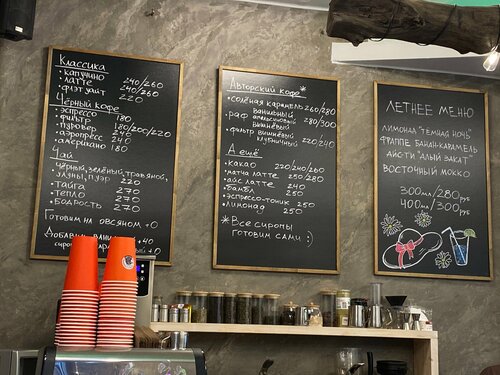 Классика
• капучино 240/260
• латте 240/260
• флэт уайт 220
Чёрный кофе
• эспрессо 180
• фильтр 180
• пуровер 180/200/220
• аэропресс 240
• американо 180
Чай
чёрный, зелёный, травяной,
улуны, пуэр 220
• тайга 270
• тепло 270
• бодрость 270
Готовим на овсяном +0
Добавим +40
+0
Авторский кофе*
• солёная карамель 260/280
• раф ванильный
апельсиновый 280/300
вишнёвый
• фильтр вишнёвый 220/240
клубничный
А ещё
• какао 220/240/260
• матча латте 250/280
• айс латте 240
• бамбл 250
• эспрессо-тоник 250
• лимонад 250
*Все сиропы
готовим сами :)
Летнее меню
лимонад "тёмная ночь"
фраппе банди-карамель
айс-ти "алый закат"
восточный мокко
300мл/280руб
400мл/300руб